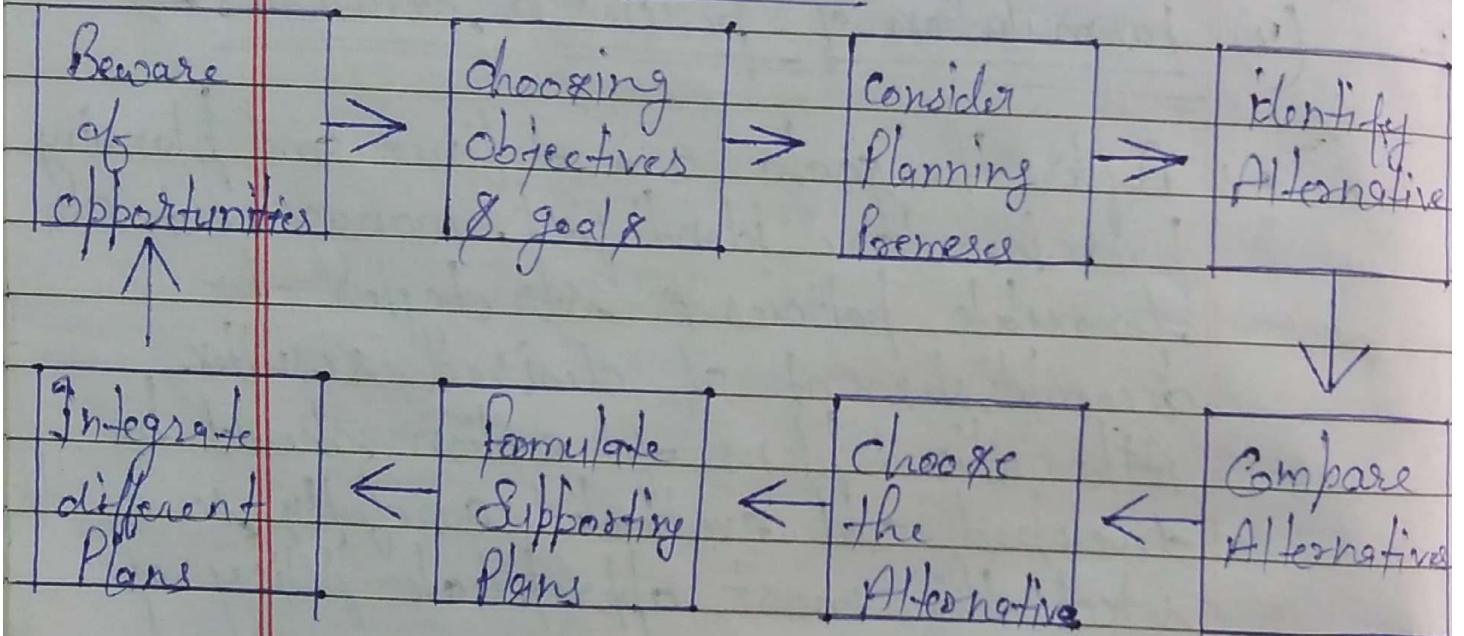 Beware
of
opportunities
choosing
objectives
& goals
Consider
Planning
Premeses
identify
Alternative
Compare
Alternatives
Choose
the
Alternative
formulate
Supporting
Plans
Integrate
different
Plans